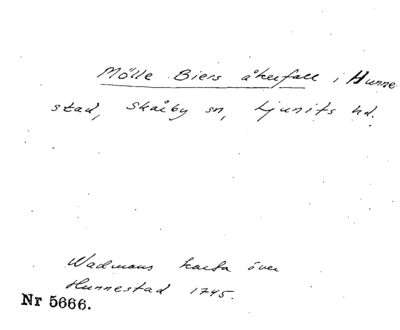 Mölle Biers åkerfall i Hunne
stad, Skårby sn, Ljunits hd.
Wadmans karta över
Hunnestad 1745.
Nr 5666.